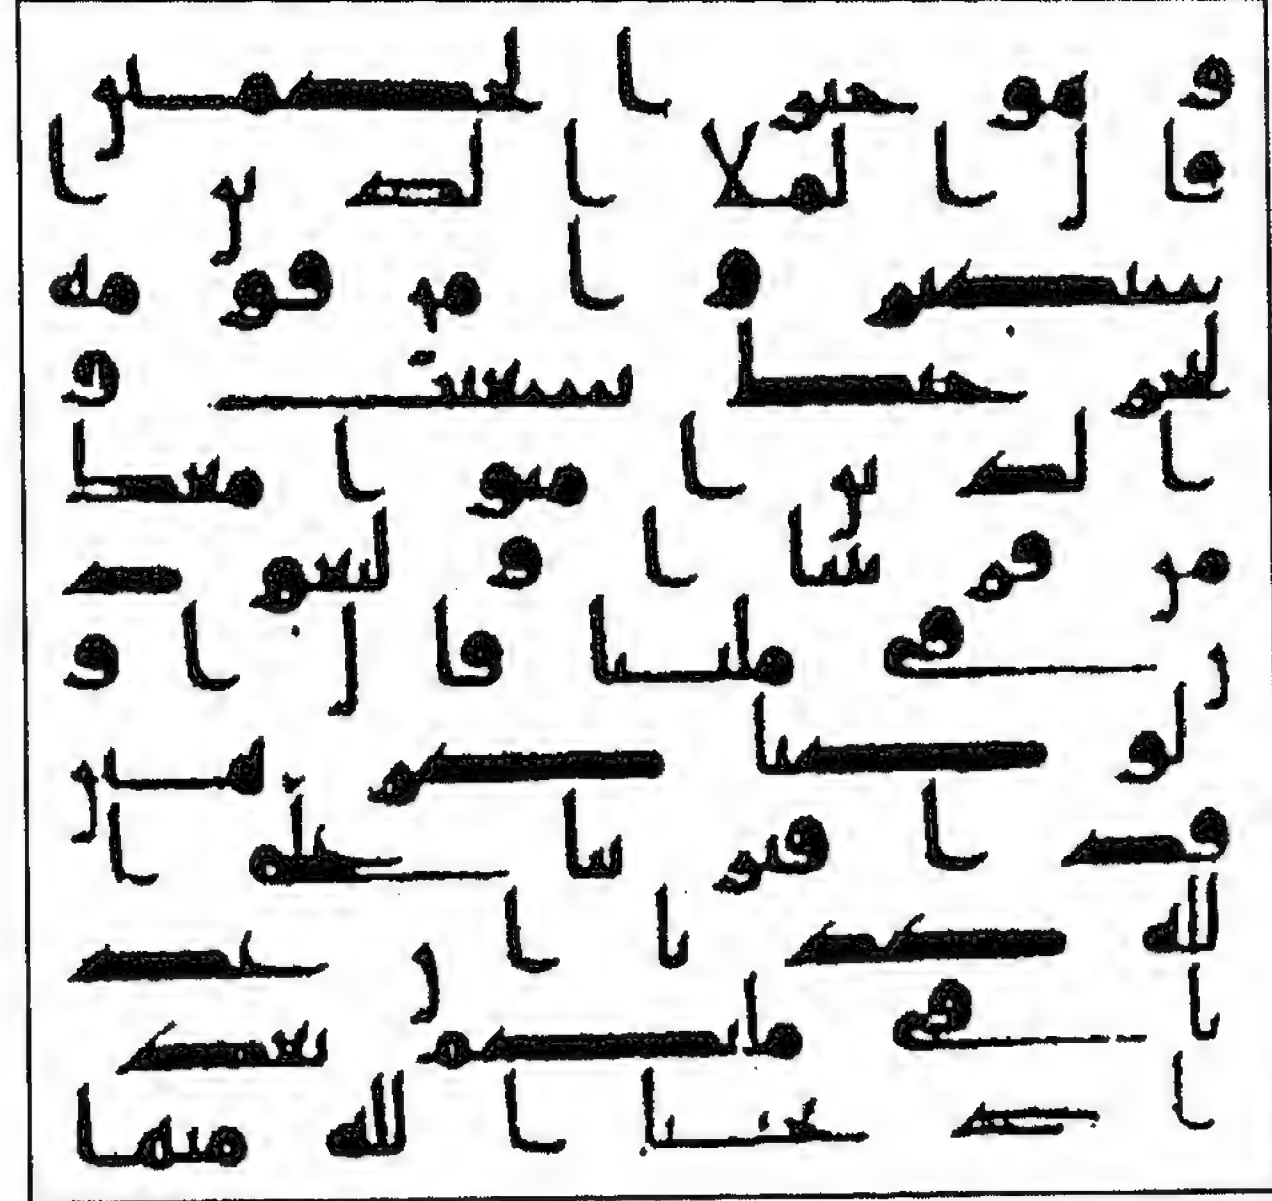 و هو خير ا لحكمين
قا ل ا لملا ا لذين ا
ستكبر و ا من قو مه
لنخر جنك يشعيب و
ا لذ ين ا منو ا معك
من قر يتنا ا و لتعود
ن في ملتنا قا ل ا و
لو كنا كر هين
قد ا فتر ينا على ا
لله كذ با ا ن عد
نا في ملتكم بعد
ا ذ نجينا ا لله منها